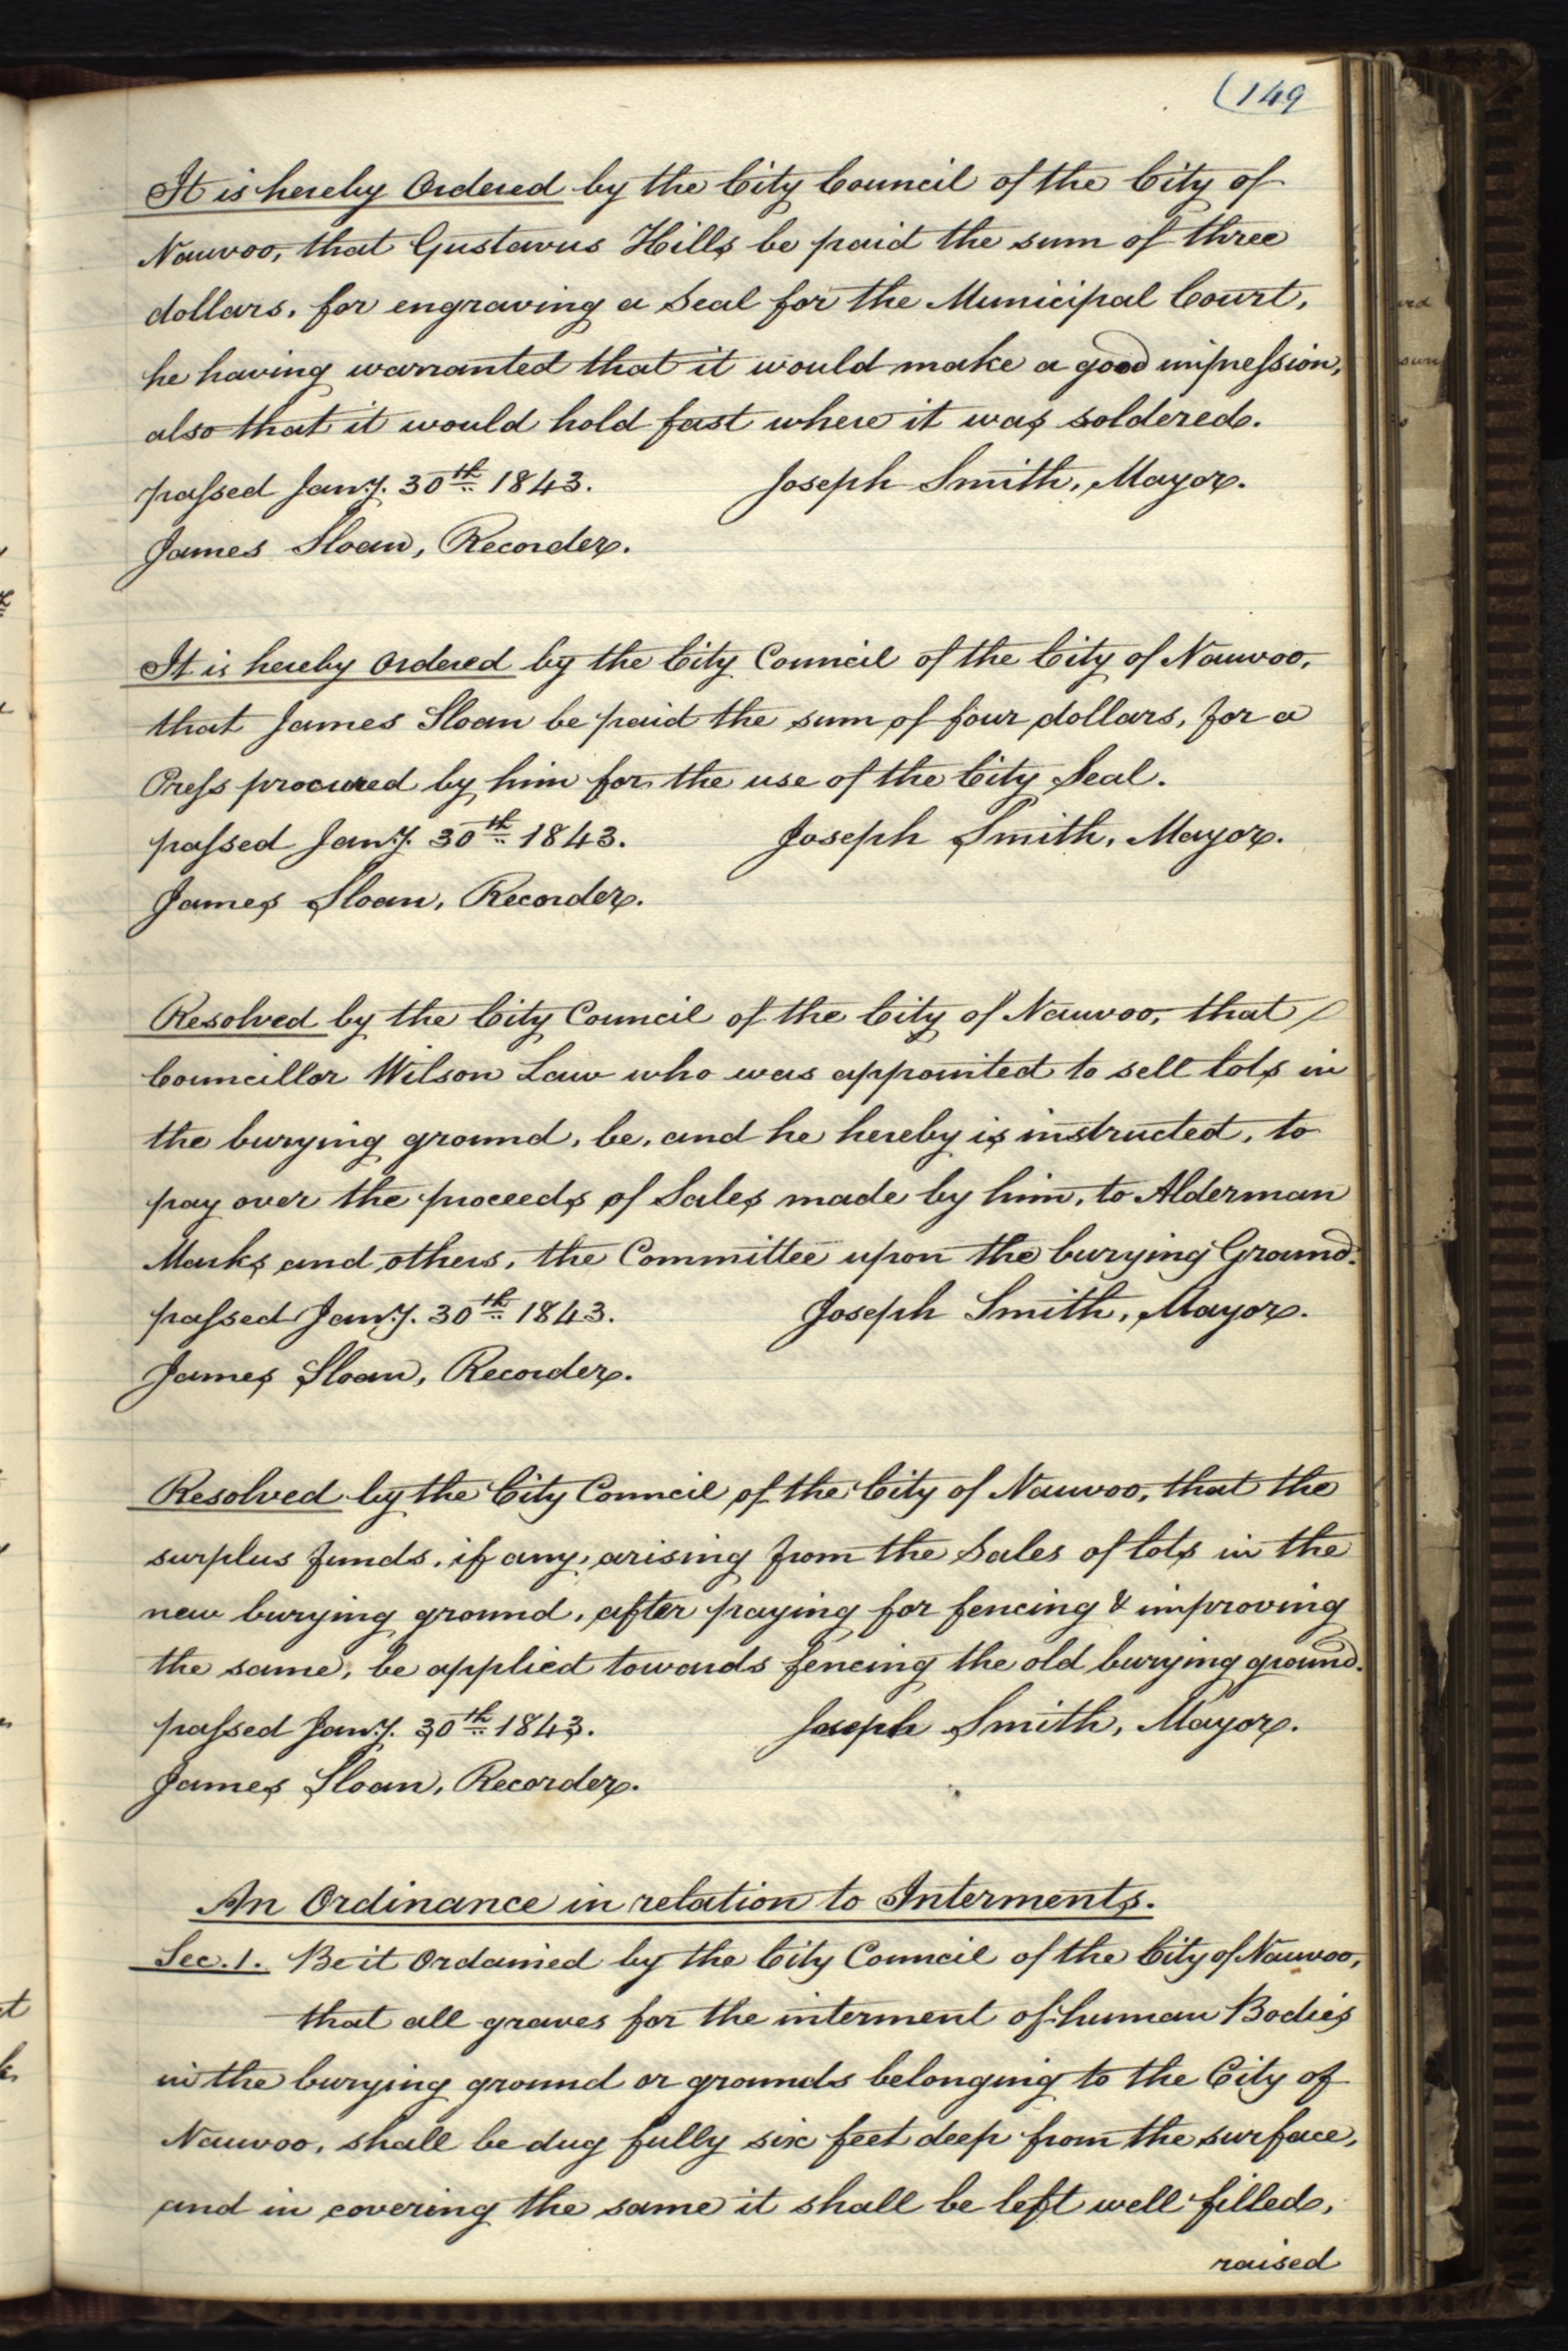 (149
It is hereby Ordered by the City Council of the City of
Nauvoo, that Gustavus Hills be paid the sum of three
dollars, for engraving a Seal for the Municipal Court,
he having warranted that it would make a good impression,
also that it would hold fast where it was soldered.
passed Jany. 30th 1843. Joseph Smith, Mayor.
James Sloan, Recorder.
It is hereby Ordered by the City Council of the City of Nauvoo,
that James Sloan be paid the sum of four dollars, for a
Press procured by him for the use of the City Seal.
passed Jany. 30th 1843. Joseph Smith, Mayor.
James Sloan, Recorder.
Resolved by the City Council of the City of Nauvoo, that
Councillor Wilson Law who was appointed to sell lots in
the burying ground, be, and he hereby is instructed, to
pay over the proceeds of Sales made by him, to Alderman
Marks and others, the Committee upon the burying Ground.
passed Jany. 30th 1843. Joseph Smith, Mayor.
James Sloan, Recorder.
Resolved by the City Council of the City of Nauvoo, that the
surplus funds, if any, arising from the Sales of lots in the
new burying ground, after paying for fencing & improving
the same, be applied towards fencing the old burying ground.
passed Jany. 30th 1843. Joseph Smith, Mayor.
James Sloan, Recorder.
An Ordinance in relation to Interments.
Sec. 1. Be it Ordained by the City Council of the City of Nauvoo,
that all graves for the interment of human Bodies
in the burying ground or grounds belonging to the City of
Nauvoo, shall be dug fully six feet deep from the surface,
and in covering the same it shall be left well filled,
raised